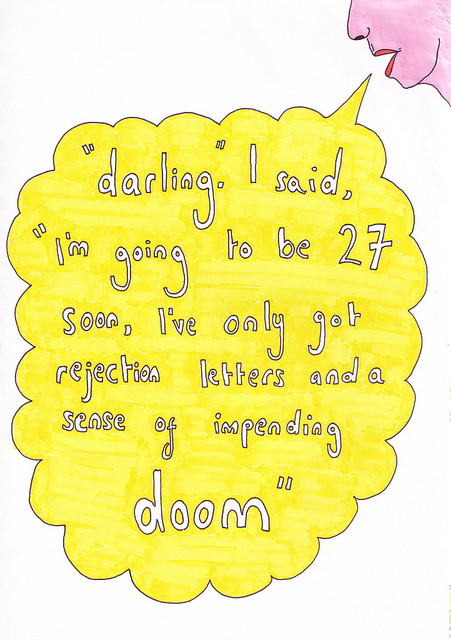 "darling". I said,
"I'm going to be 27
soon, I've only got
rejection letters and a
sense of impending
doom"